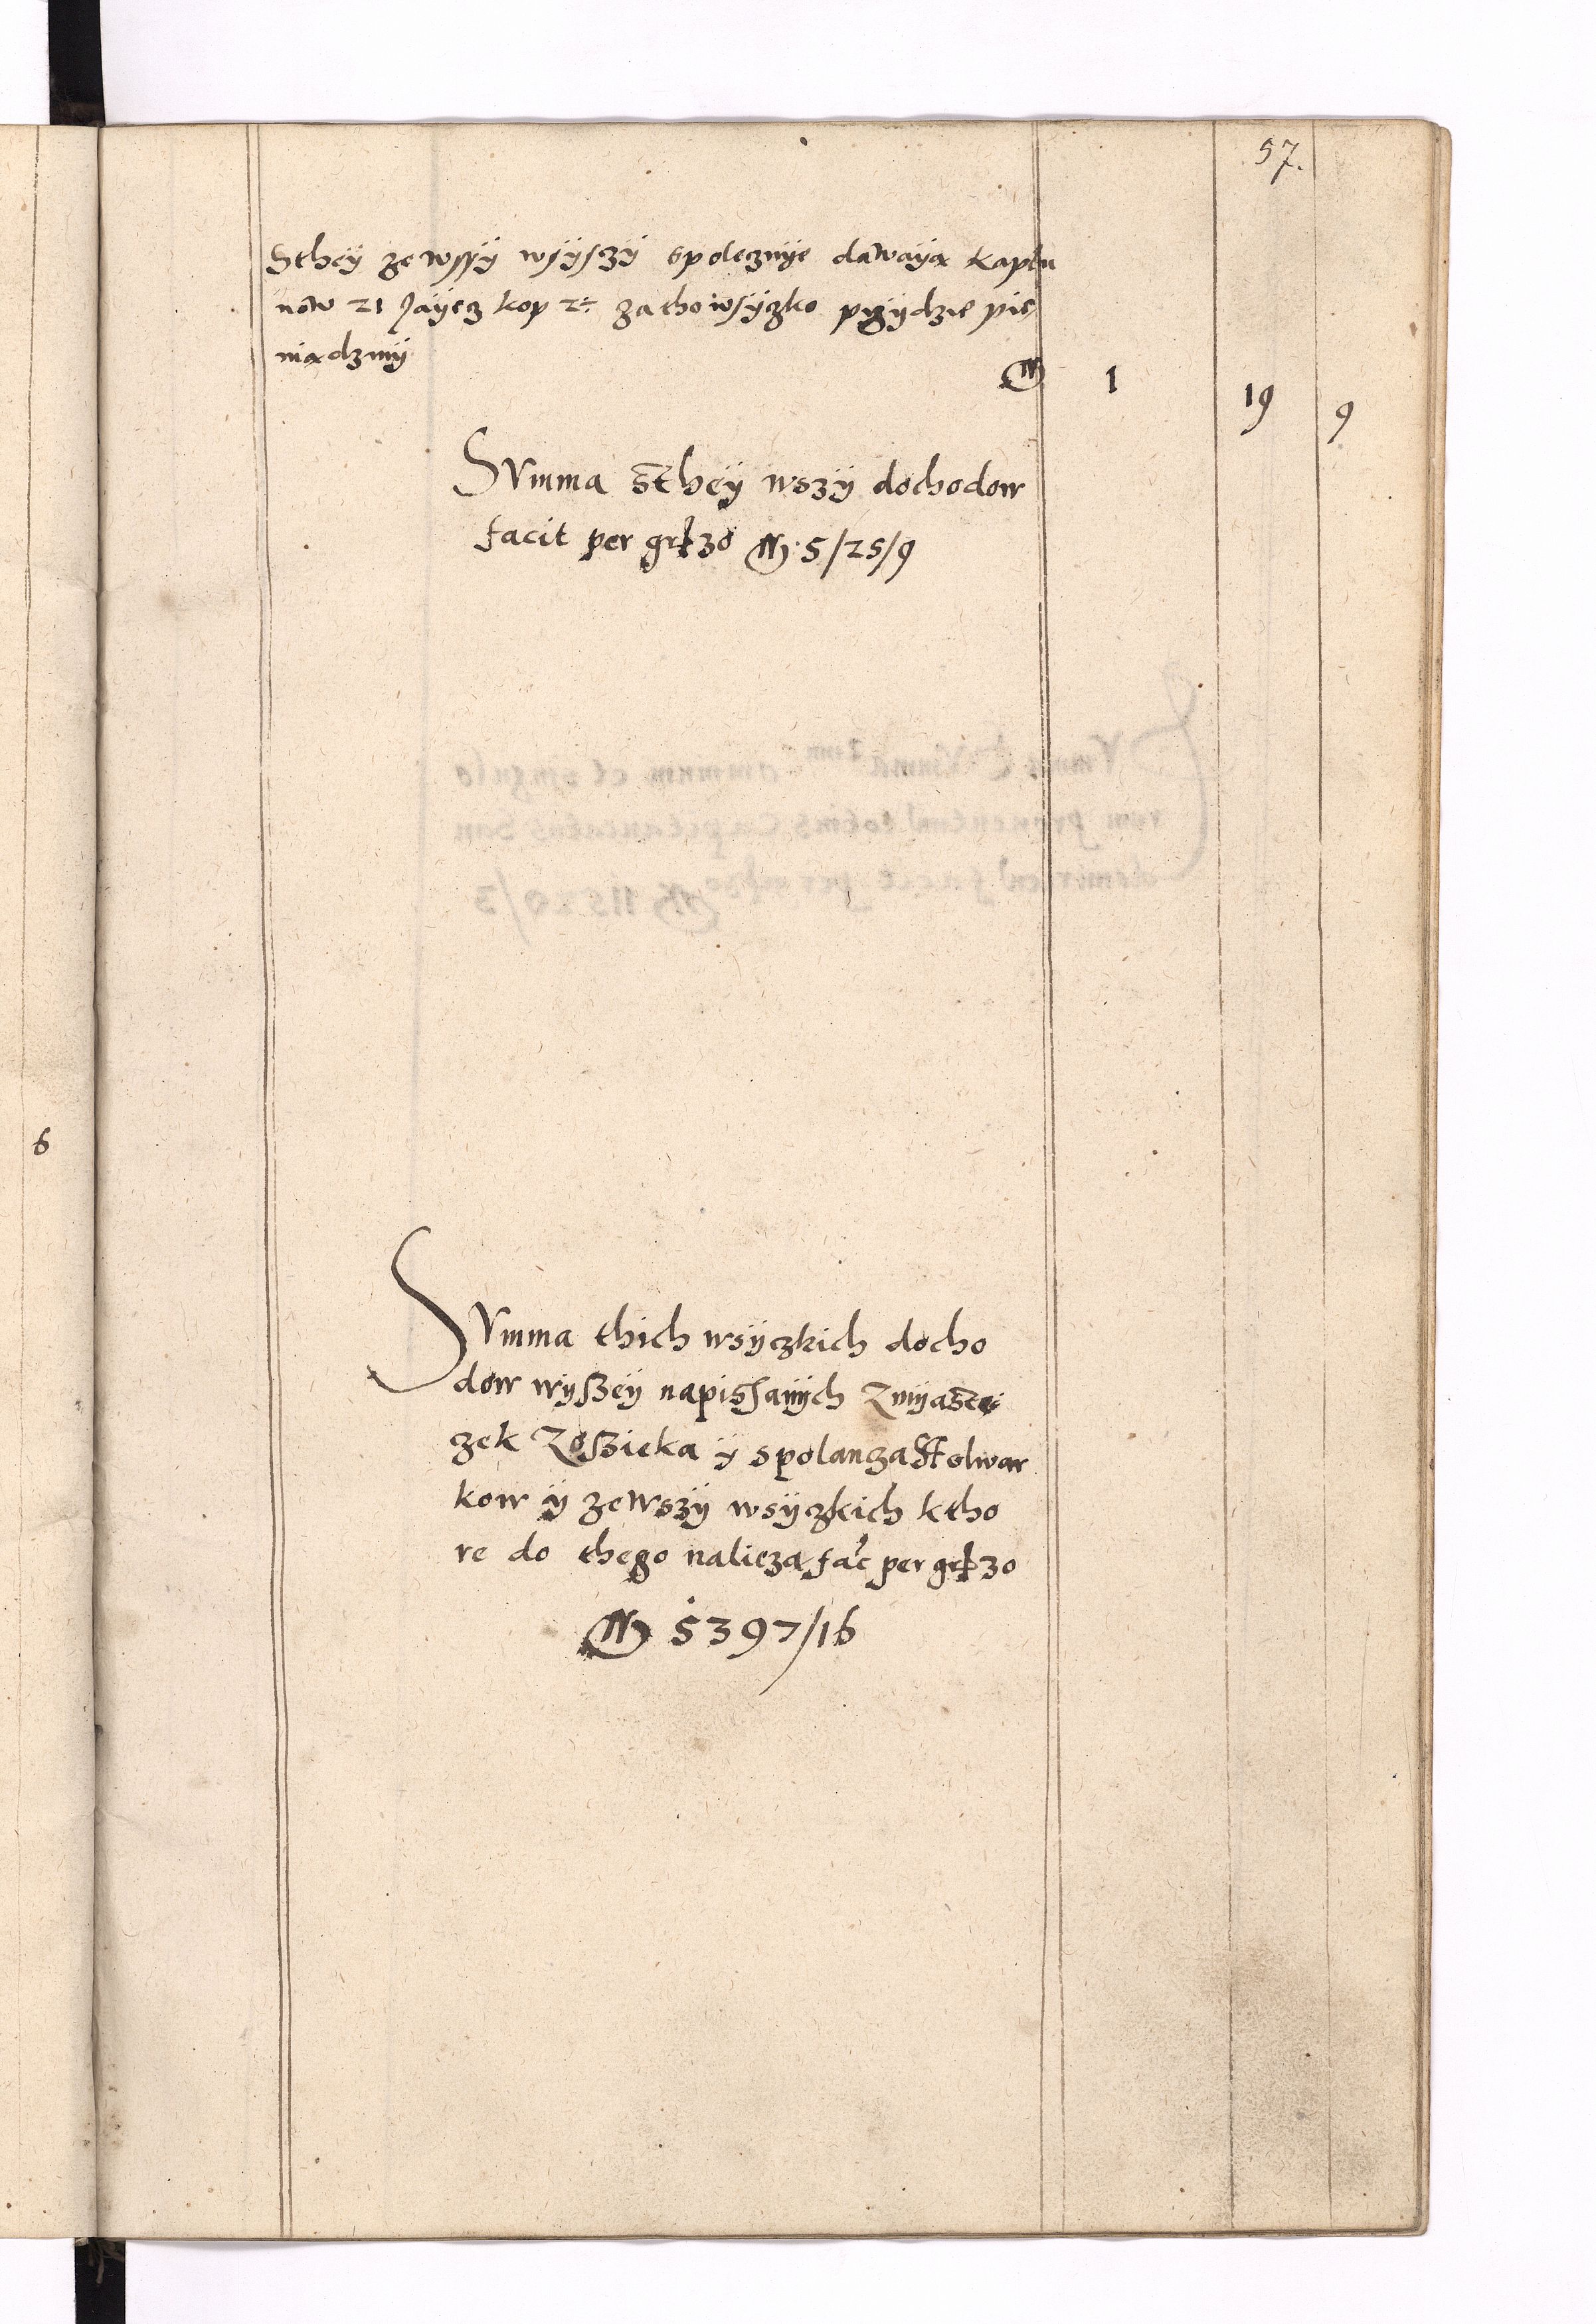 57.
Stheÿ ze wssÿ wsÿszÿ spolecznÿe dawaÿą kaplu
now 21 Jaÿecz kop zathowsÿzko przÿdzie pie
niądzmÿ M 1 19 9
SVmma stheÿ wszÿ dochodow
facit per gr 30 M 5/25/9
SVmma thich wsÿczkich docho
dow wÿszeÿ napissanÿch Zmÿaste
zek Zoszieka ÿ spolancza Ffolwar
kow ÿ zewszÿ wsÿczkich ktho
re do thego nalicza fac per gr 30
M 5397/16
6